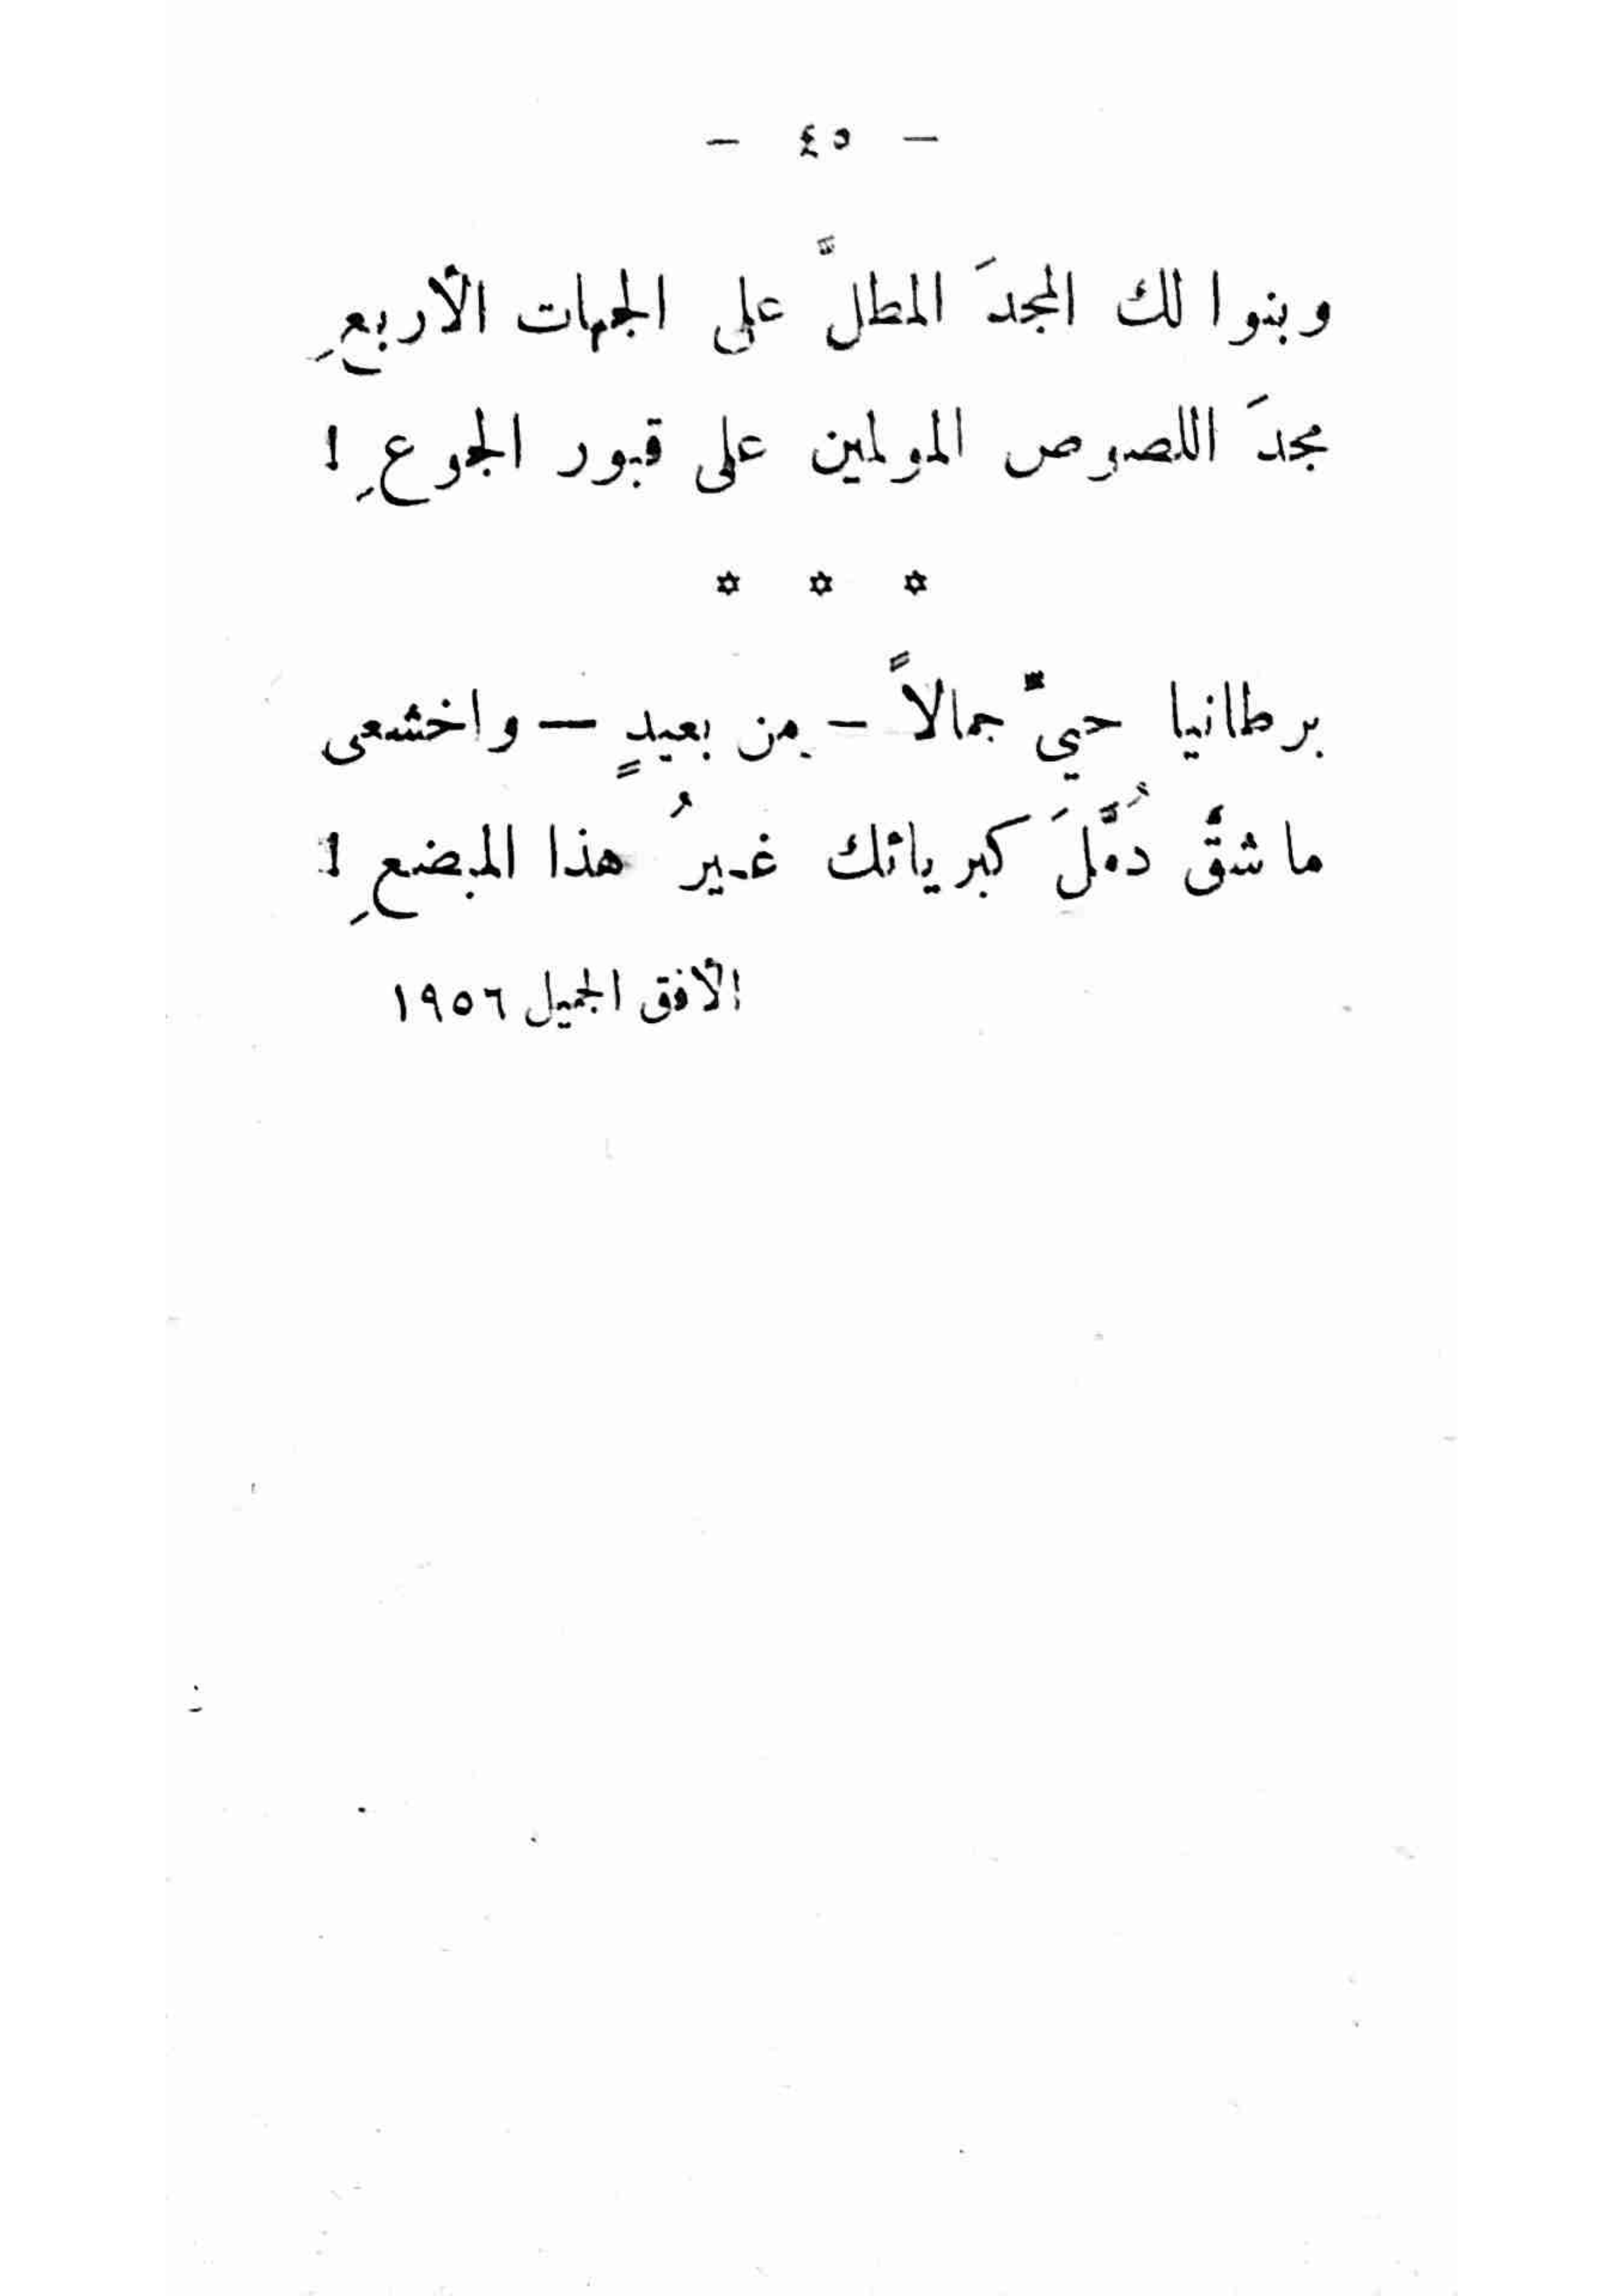 — ٤٥ —
وبنوا لك المجدَ المطلَّ على الجهات الأربعِ
مجدَ اللصوص المولمين على قبور الجوعِ !
* * *
برطانيا حيّي جمالاً — من بعيدٍ — واخشعى
ما شقَّ دُمَّلَ كبريائك غيرُ هذا المبضعِ !
الأفق الجميل ١٩٥٦